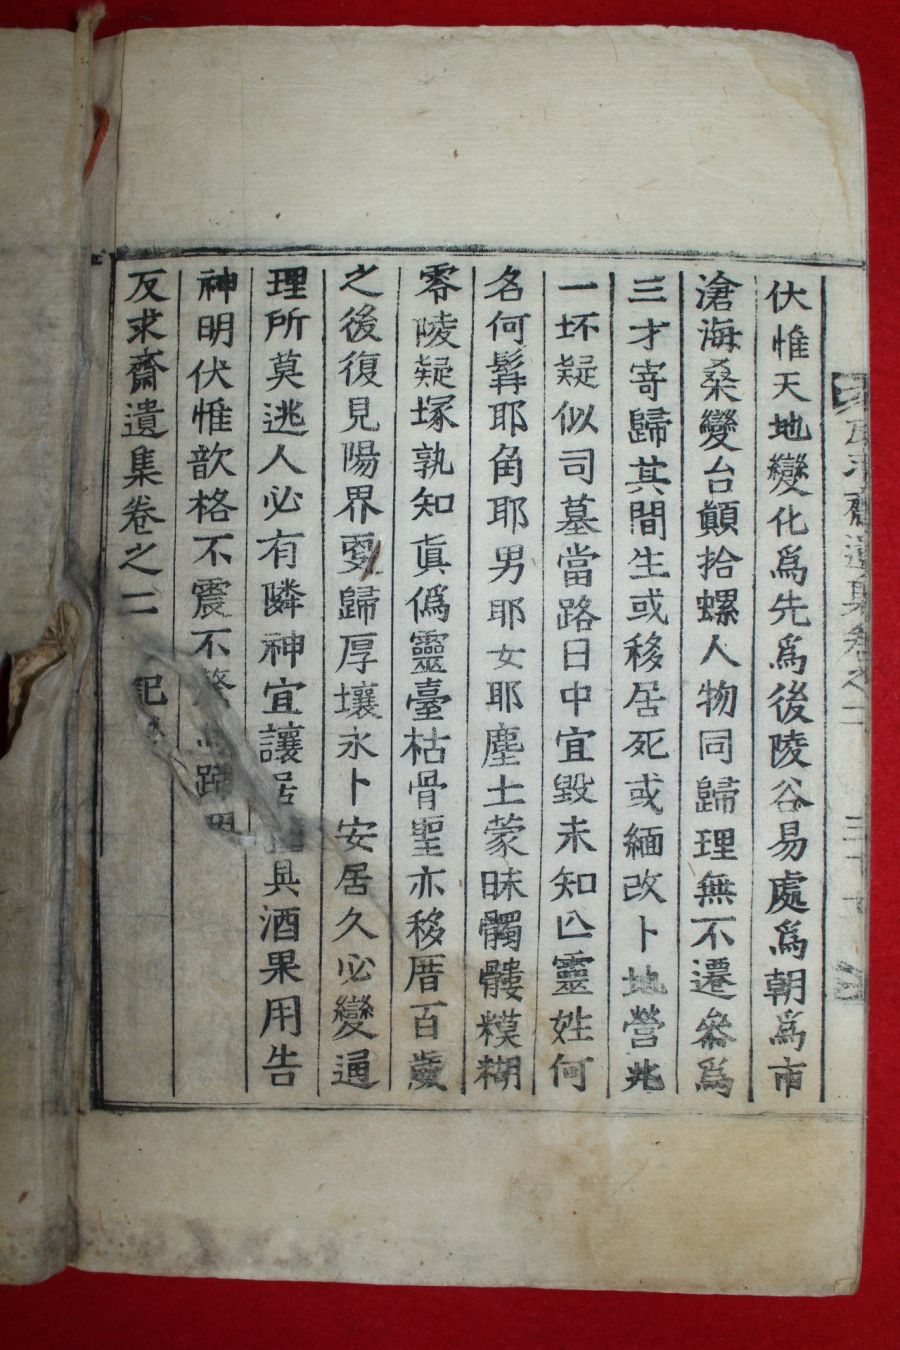 伏惟天地變化爲先爲後陵谷易處爲朝爲市
滄海桑變台顚拾螺人物同歸理無不遷叅爲
三才寄歸其間生或移居死或緬改卜地營兆
一坏疑似司墓當路日中宜毀未知亾靈姓何
名何髥耶角耶男耶女耶塵土蒙昧髑髏糢糊
零陵疑塚孰知眞僞靈臺枯骨聖亦移厝百歲
之後復見陽界爰歸厚壤永卜安居久必變通
理所莫逃人必有隣神宜讓居 具酒果用告
神明伏惟歆格不震不 歸
反求齋遺集卷之二 記
反求齋遺集卷之二 三十